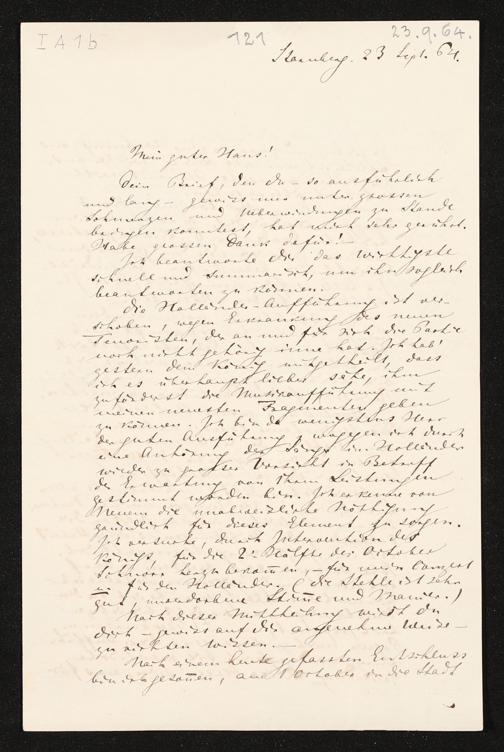 I A 1b
121
23.9.64.
Starnberg. 23 Sept. 64.
Mein guter Hans!
Dein Brief, den du – so ausführlich
und lang – gewiss nur unter grossen
und Ueberwindungen zu Stande
bringen konntest, hat mich sehr gerührt.
Habe grossen Dank dafür! –
Ich beantworte dir das wichtigste
schnell und summarisch, um ihn sogleich
beantworten zu können.
Die Holländer-Aufführung ist ver-
schoben, wegen Erkrankung des neuen
Tenoristen, der an und für sich die Partie
noch nicht gehörig inne hat. Ich hab'
gestern dem König mitgetheilt, dass
ich es überhaupt lieber sähe, ihm
zuförderst die Musikaufführung mit
meinen neuesten Fragmenten geben
zu können. Ich bin da wenigstens Herr
der guten Ausführung, wogegen ich durch
eine Anhörung der Sänger im Holländer
wieder zu grosser Vorsicht in Betreff
der Erwartung von ihren Leistungen
gestimmt worden bin. Ich erkenne von
Neuem die unabweisliche Nöthigung
gründlich für dieses Element zu sorgen.
Ich versuche, durch Intervention des
Königs, für die 2te Hälfte des October
Schnorr herzubekommen, – für mein Concert
u. für den Holländer. (die Stehle ist sehr
gut, unverdorbene Stimme und Manier.)
Nach dieser Mittheilung wirst du
dich – gewiss auf dir angenehme Weise –
zu richten wissen. –
Nach einem heute gefassten Entschluss
bin ich gesonnen, am 1 October in die Stadt